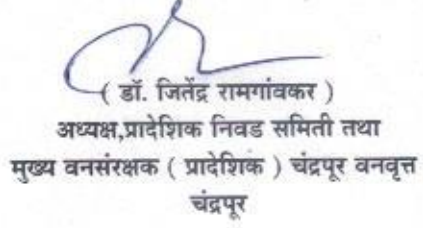 ( डॉ. जितेंद्र रामगांवकर )
अध्यक्ष,प्रादेशिक निवड समिती तथा
मुख्य वनसंरक्षक ( प्रादेशिक ) चंद्रपूर वनवृत्त
चंद्रपूर